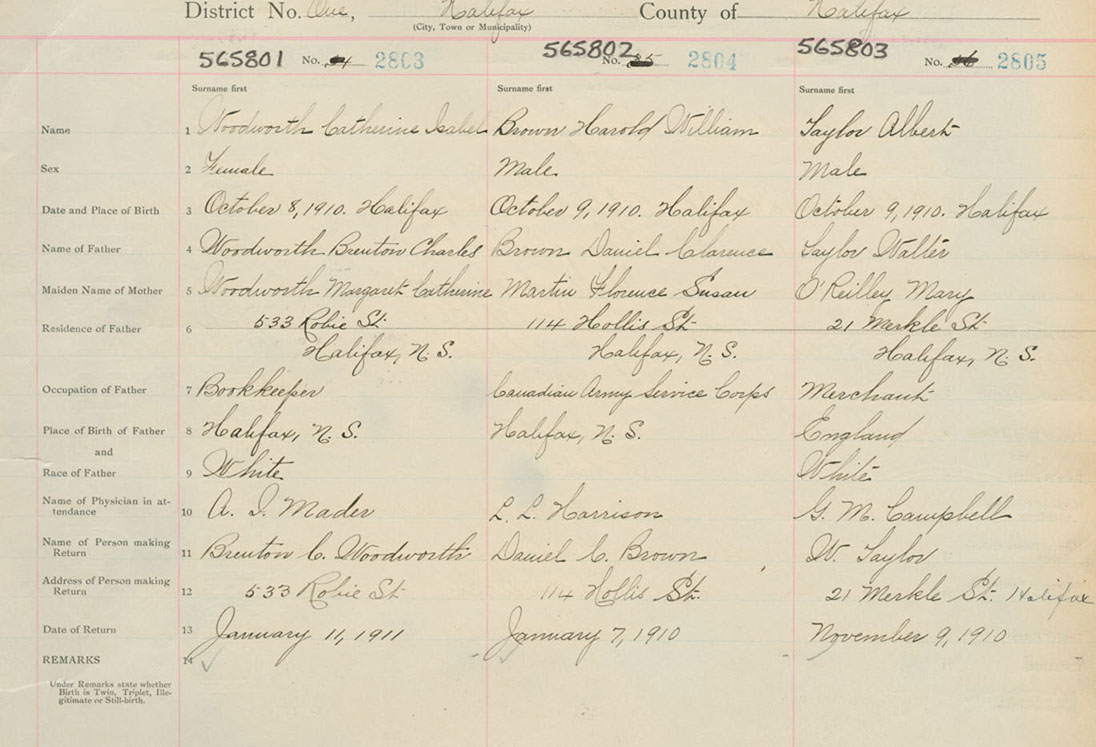 District No. One, Halifax County of Halifax
(City, Town or Municipality)
565801 No. 2803 565802 No. 35 2804 565803 No. 2805
Surname first Surname first Surname first
Name 1 Woodworth Catherine Isabel Brown Harold William Taylor Albert
Sex 2 Female Male Male
Date and Place of Birth 3 October 8, 1910. Halifax October 9, 1910. Halifax October 9, 1910. Halifax
Name of Father 4 Woodworth Brenton Charles Brown Daniel Clarence Taylor Walter
Maiden Name of Mother 5 Woodworth Margaret Catherine Martin Florence Susan O'Reilley Mary
Residence of Father 6 533 Robie St. 114 Hollis St. 21 Merkle St.
Halifax, N. S. Halifax, N. S. Halifax, N. S.
Occupation of Father 7 Bookkeeper Canadian Army Service Corps Merchant
Place of Birth of Father 8 Halifax, N. S. Halifax, N. S. England
and
Race of Father 9 White White
Name of Physician in at-
tendance 10 A. I. Mader L. L. Harrison G. M. Campbell
Name of Person making
Return 11 Brenton C. Woodworth Daniel C. Brown W. Taylor
Address of Person making
Return 12 533 Robie St. 114 Hollis St. 21 Merkle St. Halifax
Date of Return 13 January 11, 1911 January 7, 1910 November 9, 1910
REMARKS 14
Under Remarks state whether
Birth is Twin, Triplet, Ille-
gitimate or Still-birth.